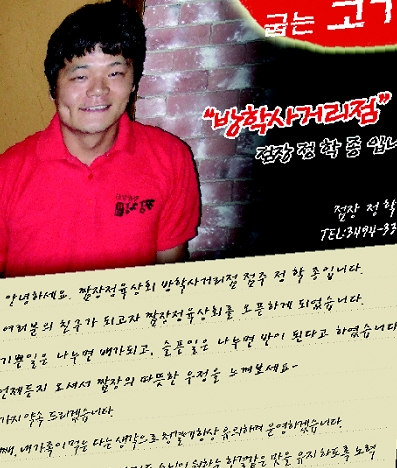 굽는 고구
“방학사거리점”
점장 정 학 종 입니
점장 정 학
TEL:3494-33
안녕하세요. 짬장정육상회 방학사거리점 점주 정 학 종입니다.
여러분의 친구가 되고자 짬장정육상회를 오픈하게 되었습니다.
기쁜일은 나누면 배가되고, 슬픈일은 나누면 반이 된다고 하였습니다
언제든지 오셔서 짬장의 따뜻한 우정을 느껴보세요~
가지약속 드리겠습니다.
째, 내가족이 먹는 다는 생각으로 청결에항상 유의하며 운영하겠습니다.
맛을 유지하도록 노력